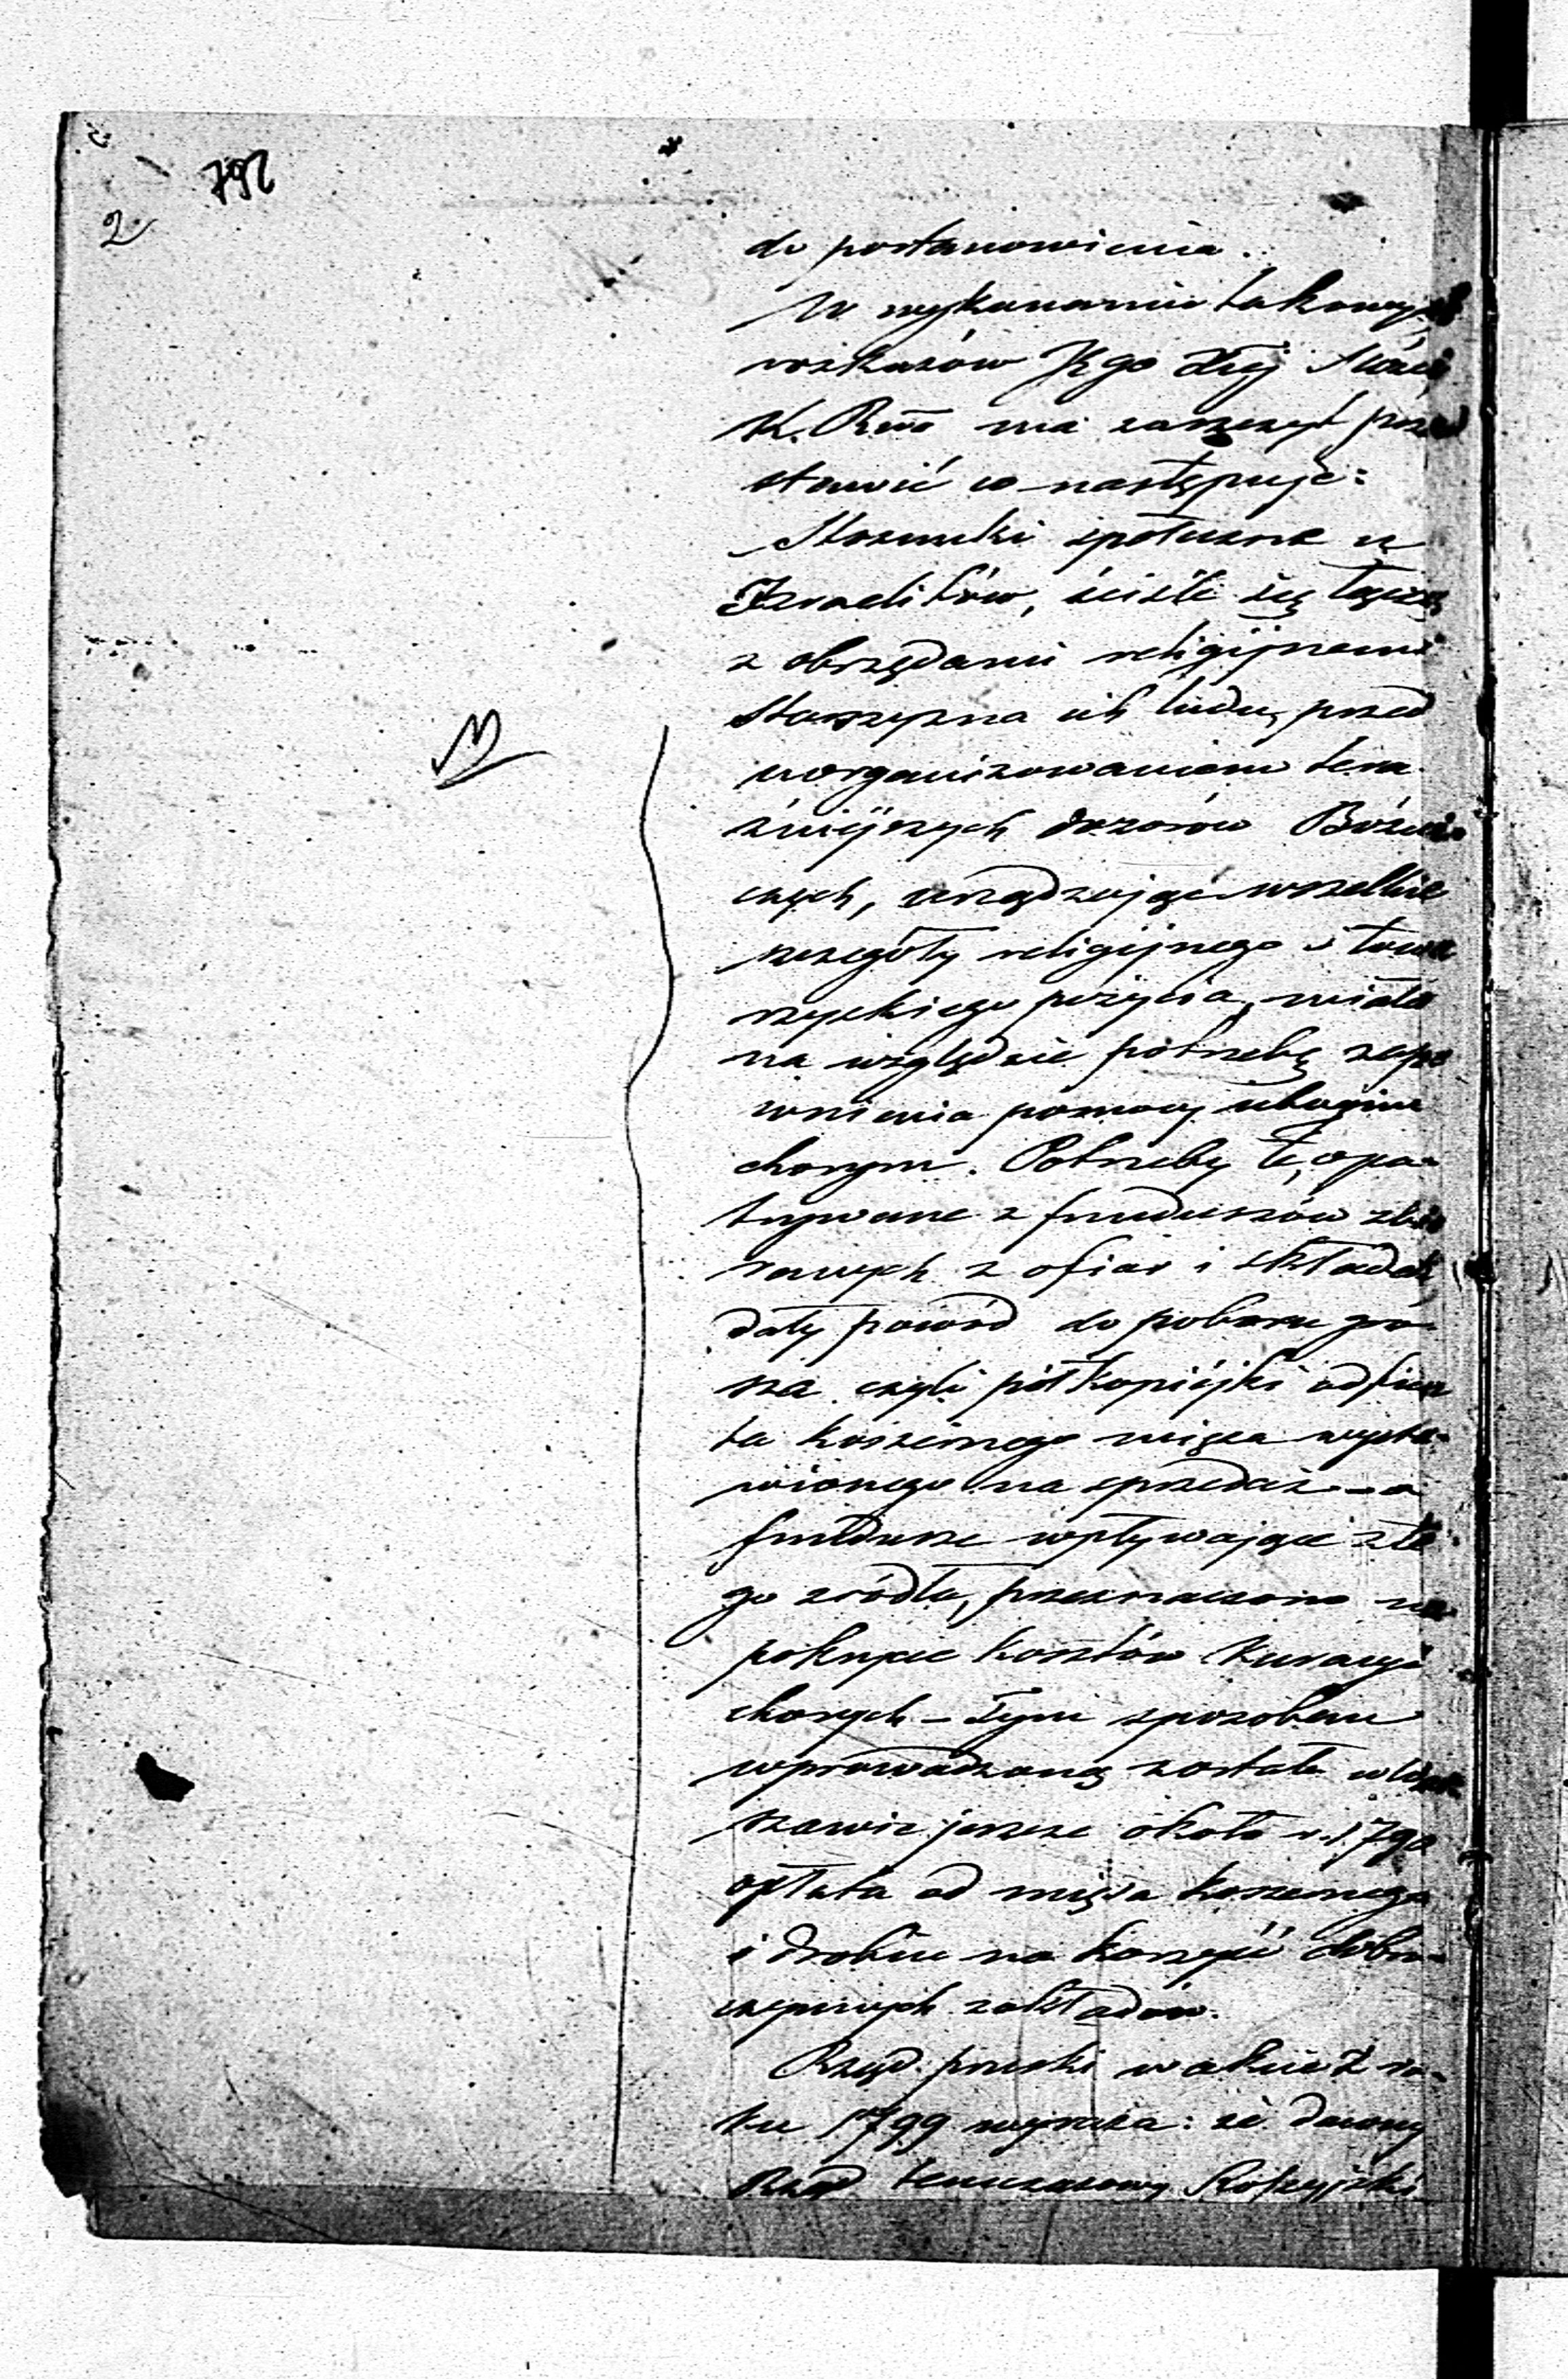 792
2
do postanowienia.
W wykonaniu takowych
rozkazów JKgo
K. Rzo ma zaszczyt przed
stawić co następuje:
Stosunki społeczne u
Izraelitów, ściśle się łączą
z obrzędami religijnemi
Starszyzna ich ludu, przed
uorganizowaniem tera
źniejszych dozorów Bóżni
czych, urządzając wszelkie
szczegóły religijnego i towa
rzyskiego pożycia, miała
na względzie potrzebę zape
wnienia pomocy ubogim
chorym. Potrzeby te, opa-
trywane z funduszów zbie
ranych z ofiar i składek
dały powód do poboru gro-
sza czyli pół kopiejki od fun
ta koszernego mięsa wysta-
wionego na sprzedaż – a
fundusze wpływające z te
go źródła, przeznaczono na
pokrycie kosztów kuracyi
chorych – Tym sposobem
wprowadzoną została w War
szawie jeszcze około r. 1790
opłata od mięsa koszernego
i drobiu na korzyść dobro-
czynnych zakładów.
Rząd pruski w akcie z ro-
ku 1799 wyraża: że dawny
Rząd tymczasowy Rossyjski